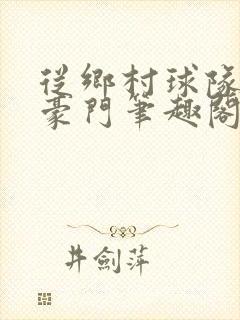 從鄉村球隊
豪門筆趣閣
井劍萍